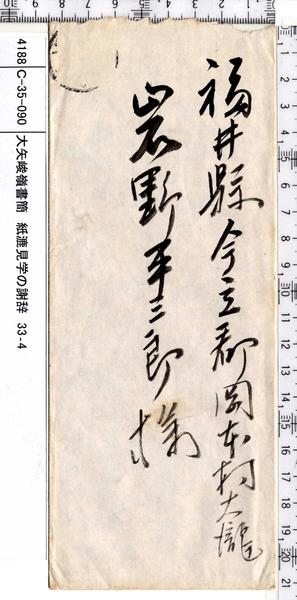 4188 C-35-090 大矢峻嶺書簡 紙漉見学の謝辞 33-4
福井縣今立郡岡本村大瀧
岩野平三郎様